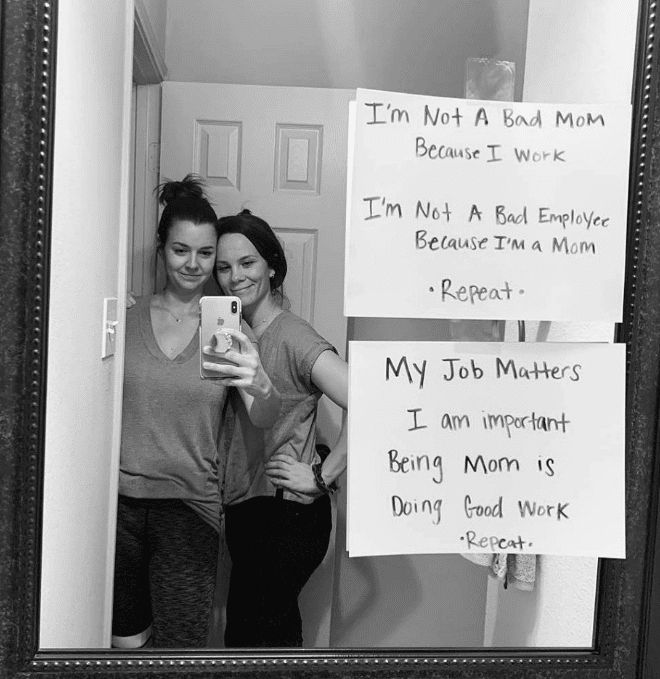 I'm Not A Bad Mom
Because I Work
I'm Not A Bad Employee
Because I'm a Mom
• Repeat •
My Job Matters
I am important
Being Mom is
Doing Good Work
• Repeat •